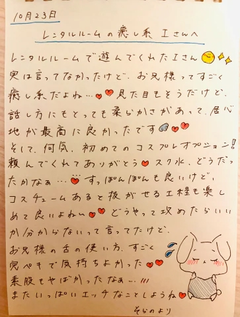 10月23日
レンタルルームの癒し系 Iさんへ
レンタルルームで遊んでくれたIさん
実は言ってなかったけど、お兄様ってすごく
癒し系だよね…見た目もそうだけど、
話し方にもとっても柔いかさがあって、居心
地が最高に良かったです
そして、何気、初めてのコスプレオプション!!
頼んでくれてありがとう スク水、どうだっ
たかなぁ…す。ぽんぽんも良いけど、
コスチュームあると脱がせる工程も楽し
めて良いよねぃ どうやって攻めたらいい
か分からないって言ってたけど、
お兄様の舌の使い方、すごく
気持ちよかった
素股もやばかったなぁ…!!!
またいっぱいエッチなことしようね
そらのより